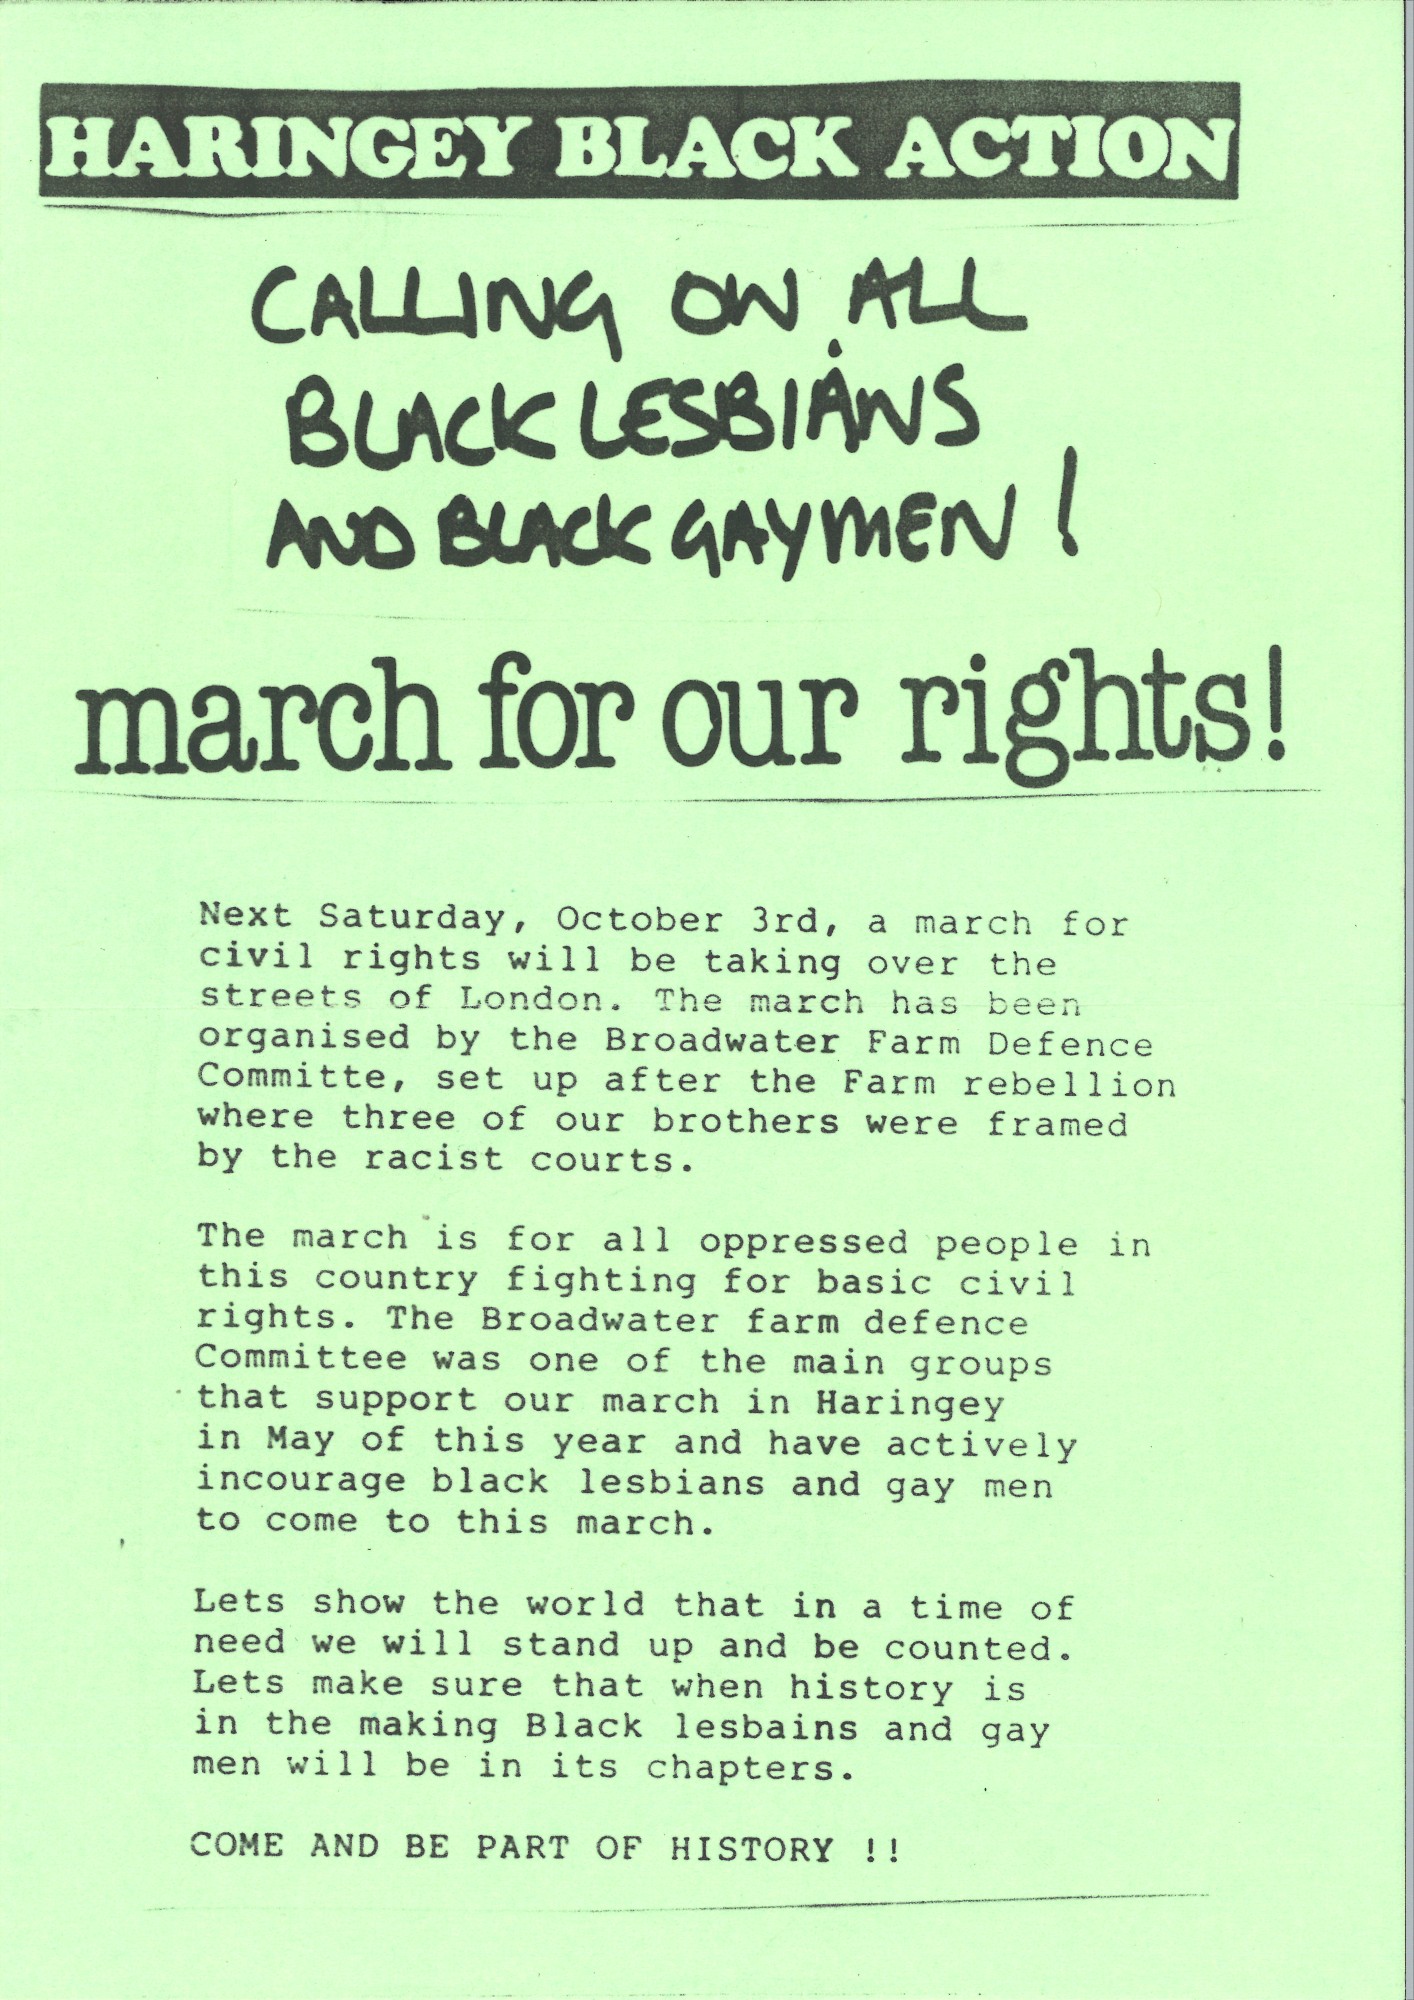 HARINGEY BLACK ACTION
CALLING ON ALL
BLACK LESBIANS
AND BLACK GAY MEN!
march for our rights!
Next Saturday, October 3rd, a march for
civil rights will be taking over the
streets of London. The march has been
organised by the Broadwater Farm Defence
Committe, set up after the Farm rebellion
where three of our brothers were framed
by the racist courts.
The march is for all oppressed people in
this country fighting for basic civil
rights. The Broadwater farm defence
Committee was one of the main groups
that support our march in Haringey
in May of this year and have actively
incourage black lesbians and gay men
to come to this march.
Lets show the world that in a time of
need we will stand up and be counted.
Lets make sure that when history is
in the making Black lesbains and gay
men will be in its chapters.
COME AND BE PART OF HISTORY !!